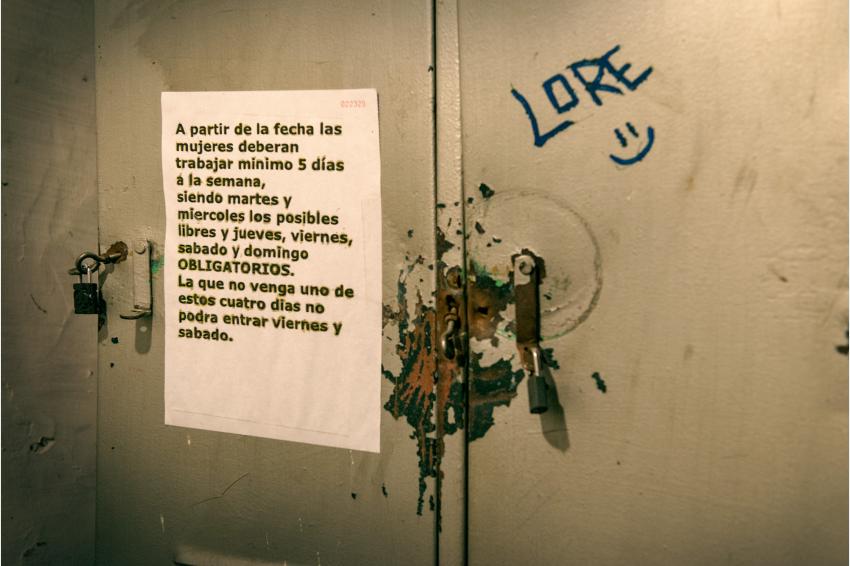 022325
A partir de la fecha las
mujeres deberan
trabajar minimo 5 días
a la semana,
siendo martes y
miercoles los posibles
libres y jueves, viernes,
sabado y domingo
OBLIGATORIOS.
La que no venga uno de
estos cuatro dias no
podra entrar viernes y
sabado.
LORE